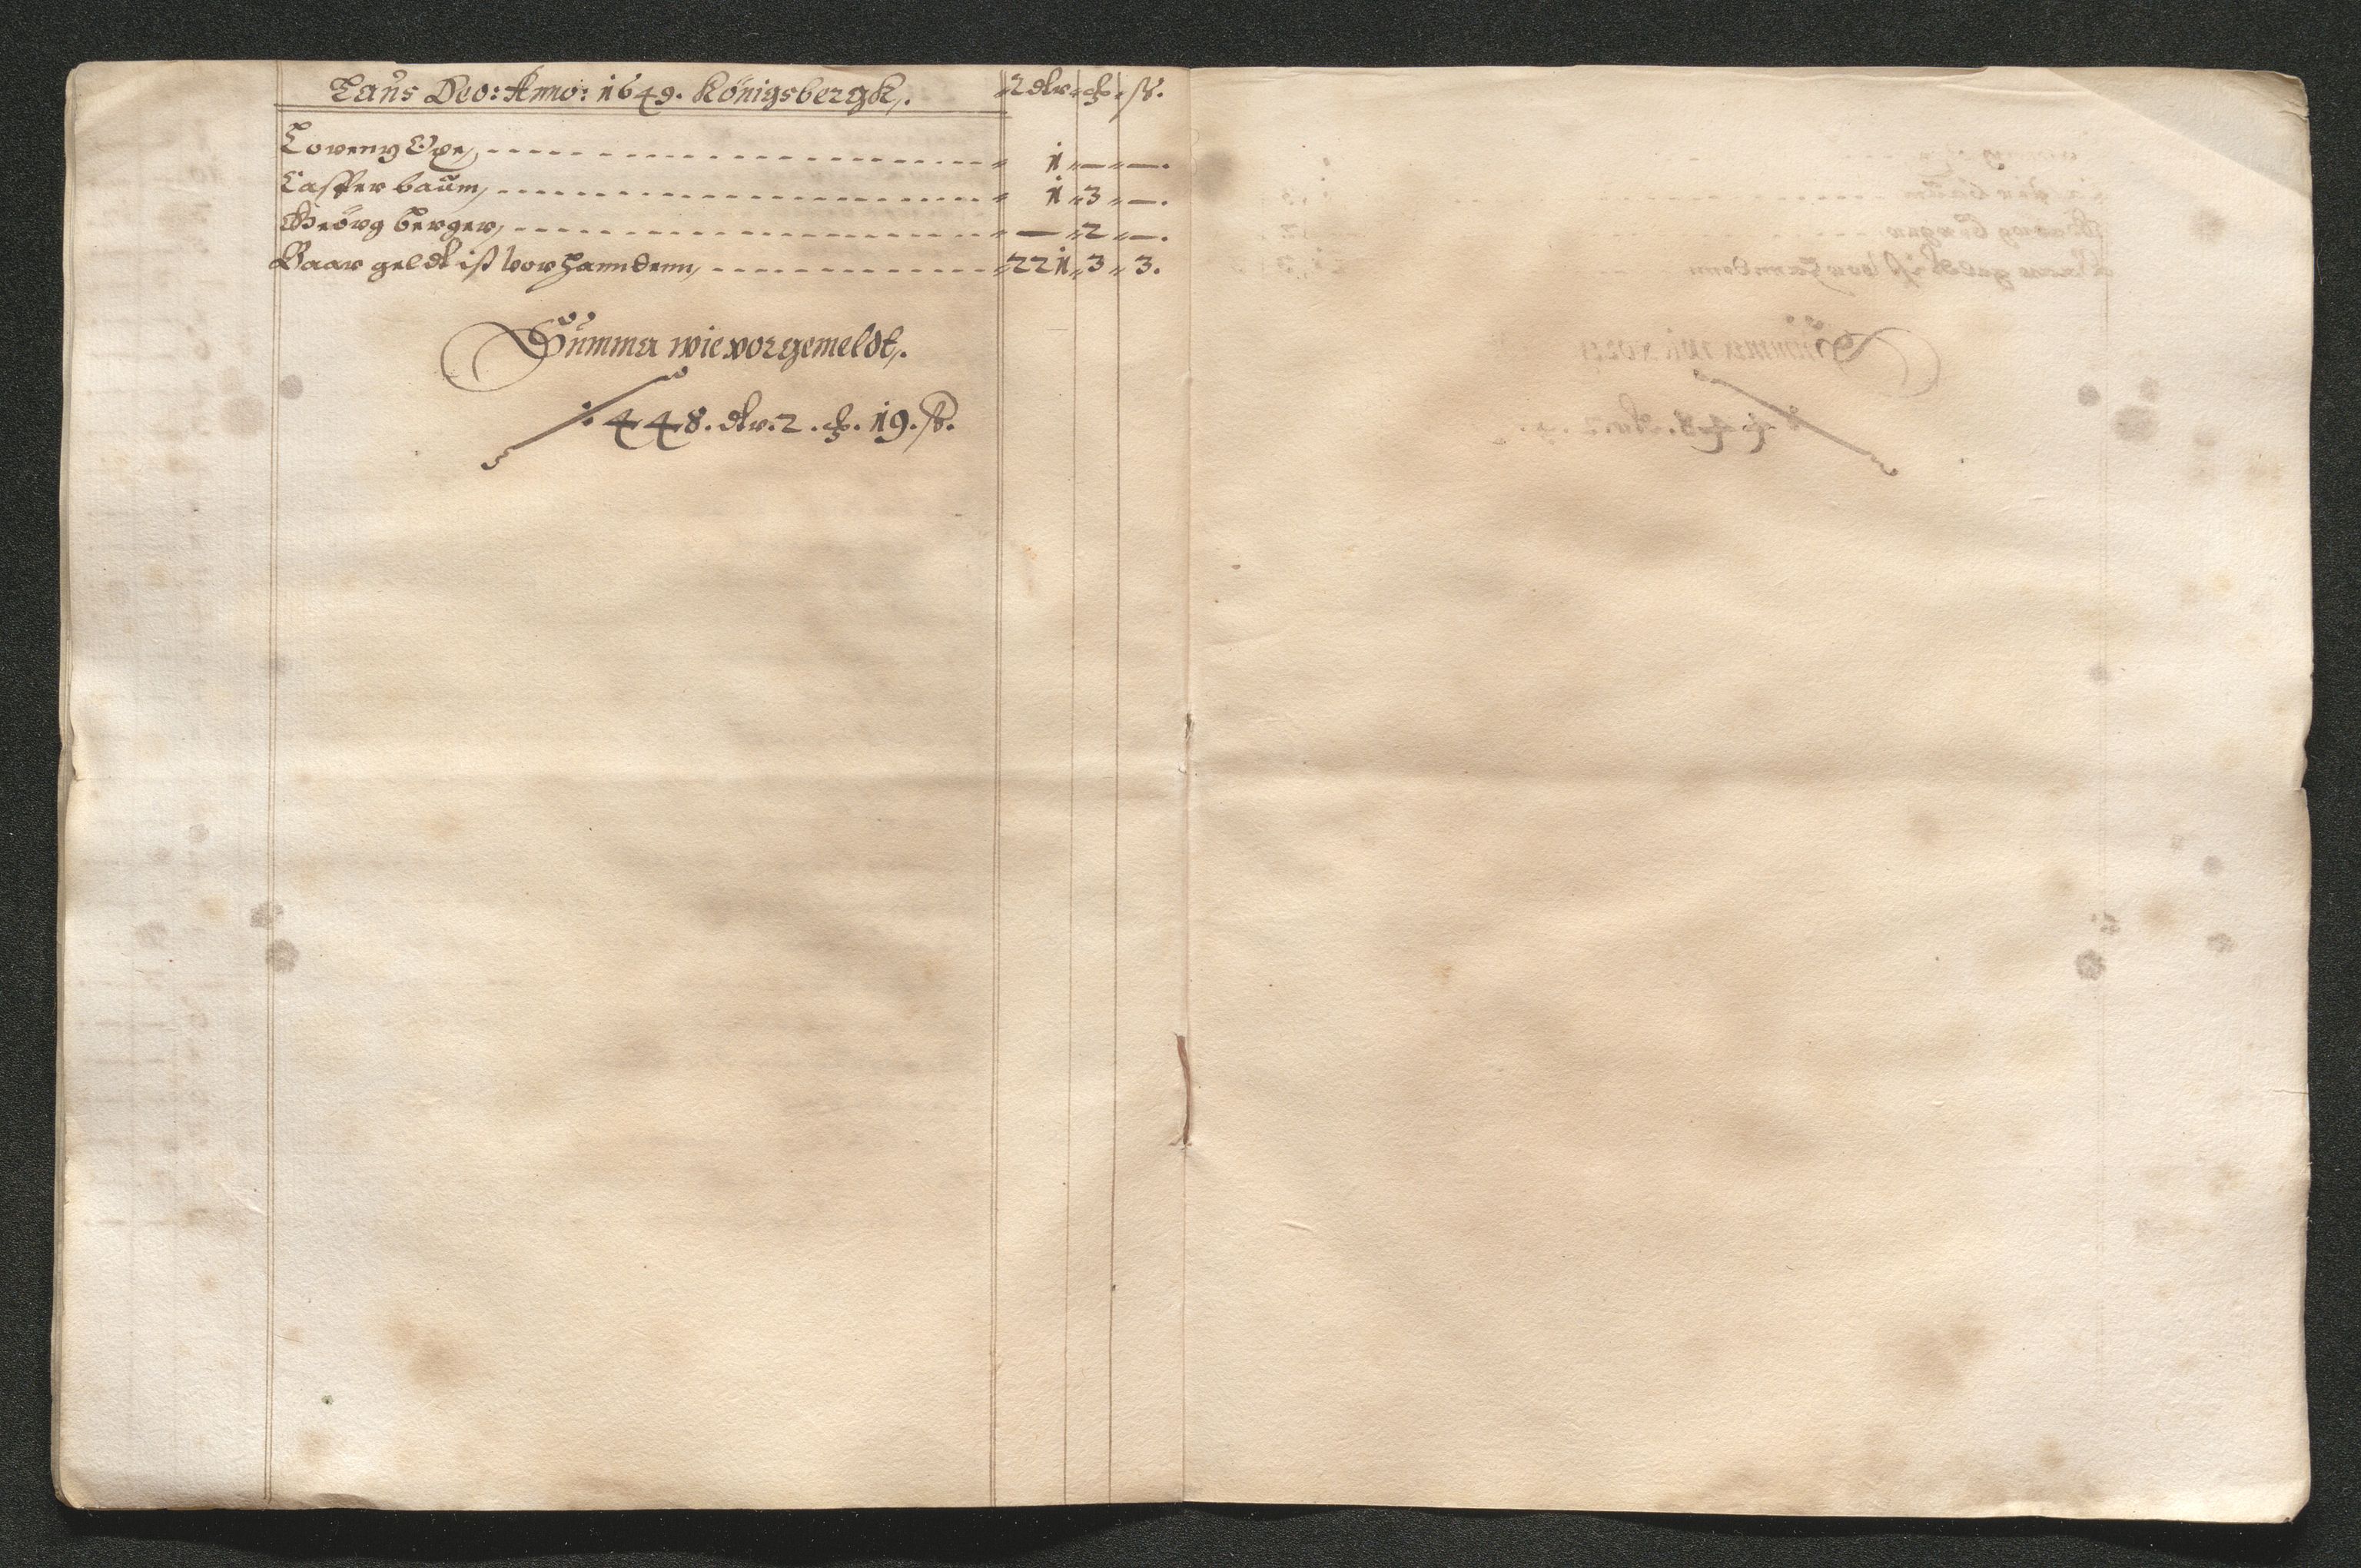 Laus Deo: Anno: 1649. Königsbergk. Rdlr. ß.
Lorentz Oxe, 1 — —.
Casper baum, 1 3 —.
Geörg berger, — 2 —.
Baar geldt ist vorhanndenn, 221 3 3.
Summa wie vorgemeldt.
448. dlr. 2. 19. ß.